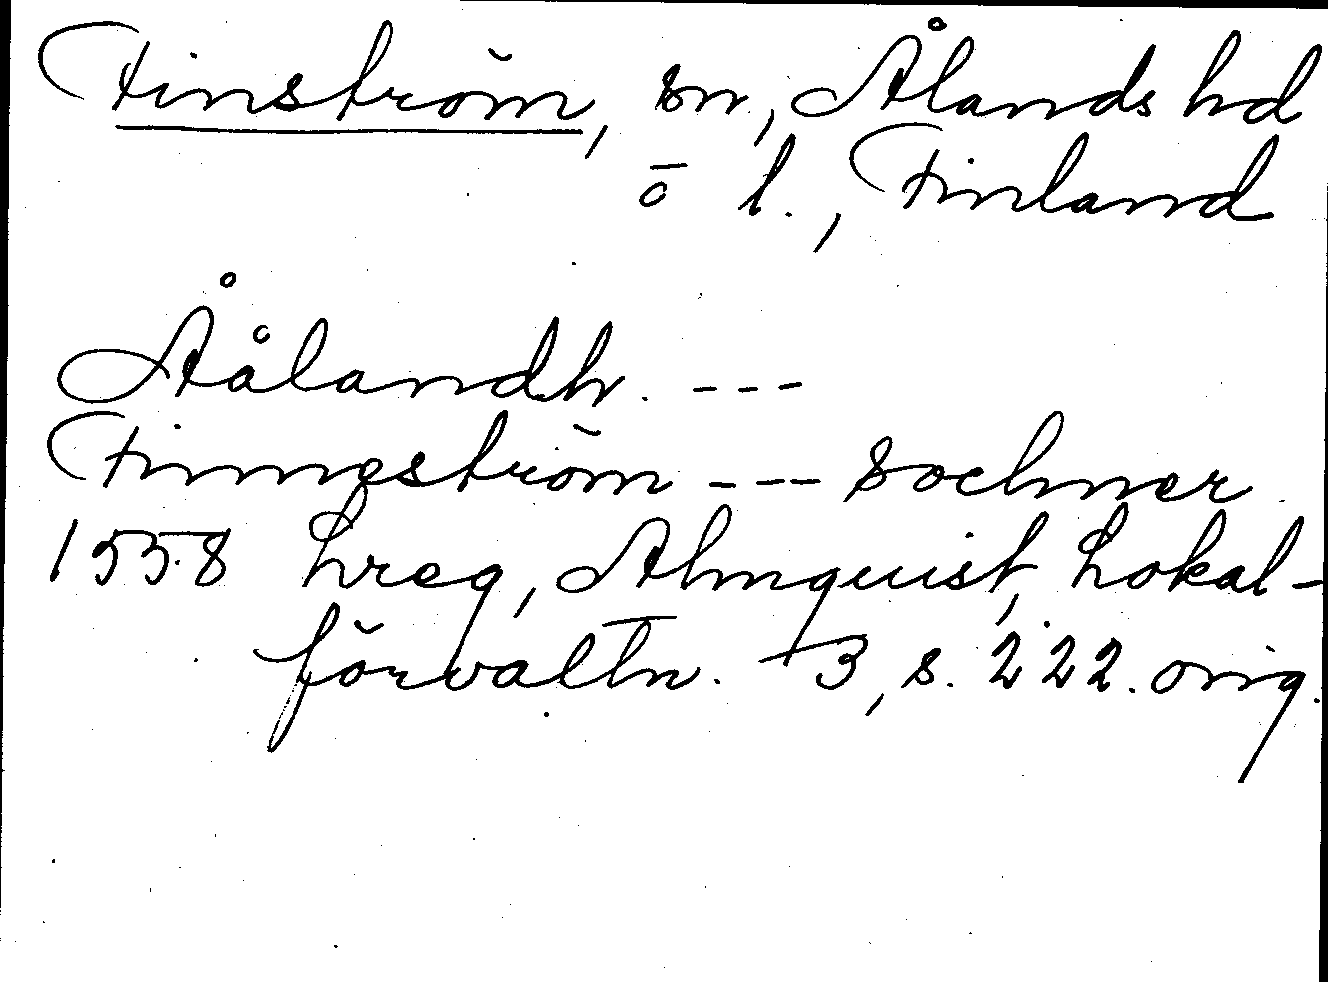 Finström, sn, Ålands hd
ö l., Finland
Åålandh. ---
Finneström --- sochner
1558 hreg, Almquist, Lokal-
förvaltn. 3, s. 222. orig.